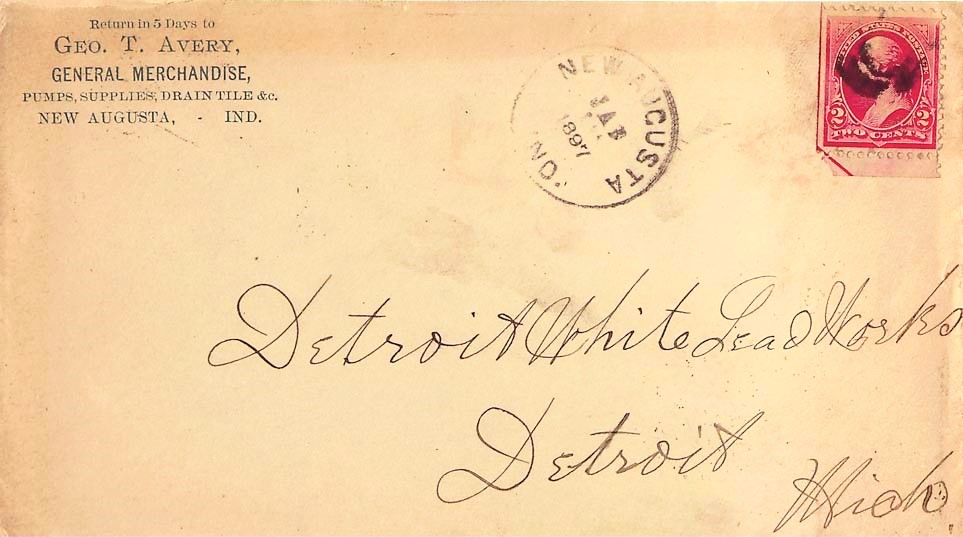 Return in 5 Days to
GEO. T. AVERY,
GENERAL MERCHANDISE,
PUMPS, SUPPLIES, DRAIN TILE &c.
NEW AUGUSTA, - IND.
NEW AUGUSTA
1897
IND.
UNITED STATES POSTAGE
2 2
TWO CENTS
Detroit White Lead Works
Detroit
Mich